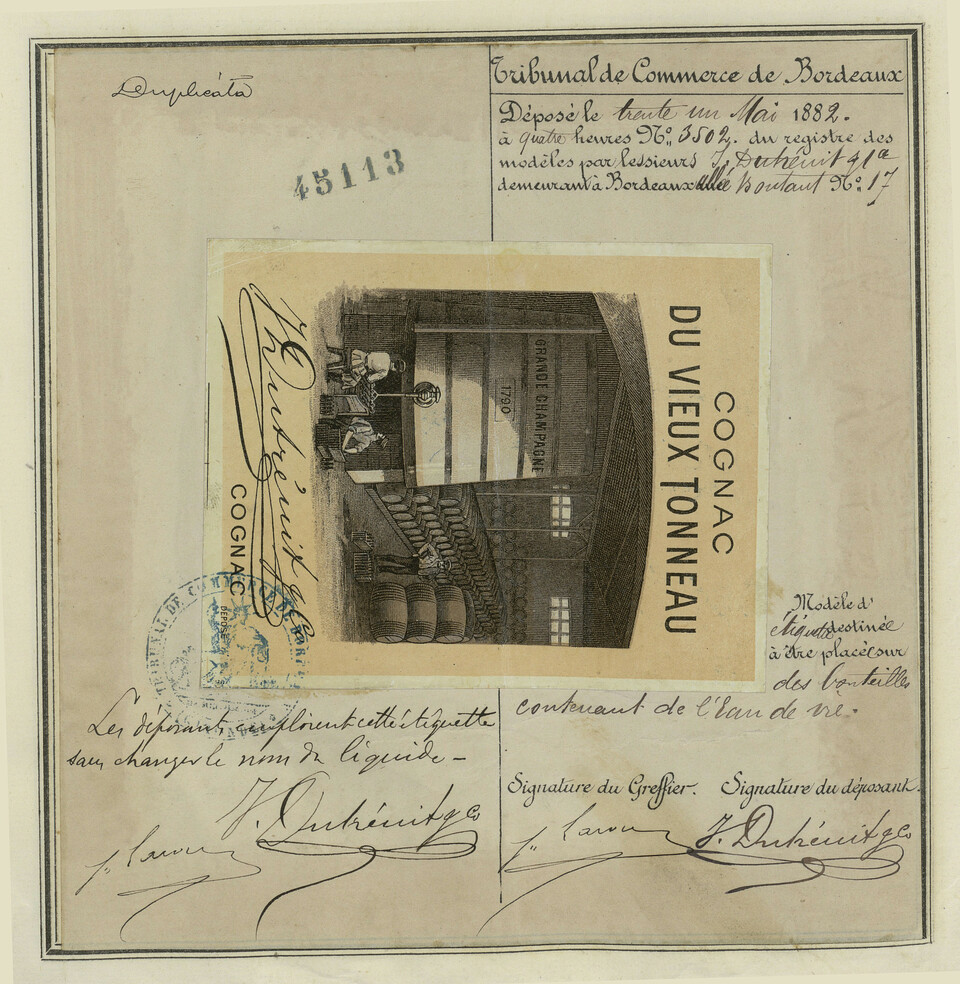 Duplicata
45113
Tribunal de Commerce de Bordeaux
Déposé le trente un Mai 1882.
à quatre heures No. 3502. du registre des
modèles par lessieurs J. Dutrénit & Cie
demeurant à Bordeaux allée Boutaut No. 17
COGNAC
DU VIEUX TONNEAU
GRANDE CHAMPAGNE
1790
J. Dutrénit & Co
COGNAC
DÉPOSÉ
TRIBUNAL DE COMMERCE DE BORDEAUX
Modèle d'
étiquette destinée
à être placée sur
des bouteilles
contenant de l'Eau de vie.
Les déposants emploient cette étiquette
sans changer le nom du liquide -
J. Dutrénit & Co
Signature du Greffier. Signature du déposant.
J. Dutrénit & Co